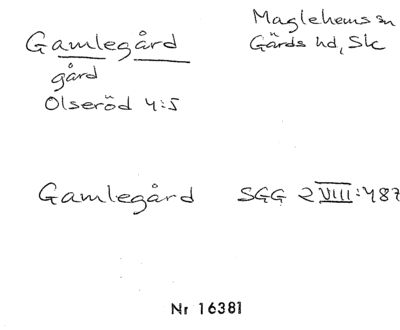 Gamlegård
gård
Olseröd 4:5
Maglehems sn
Gärds hd, Sk
Gamlegård SGG 2 VIII:487
Nr 16381